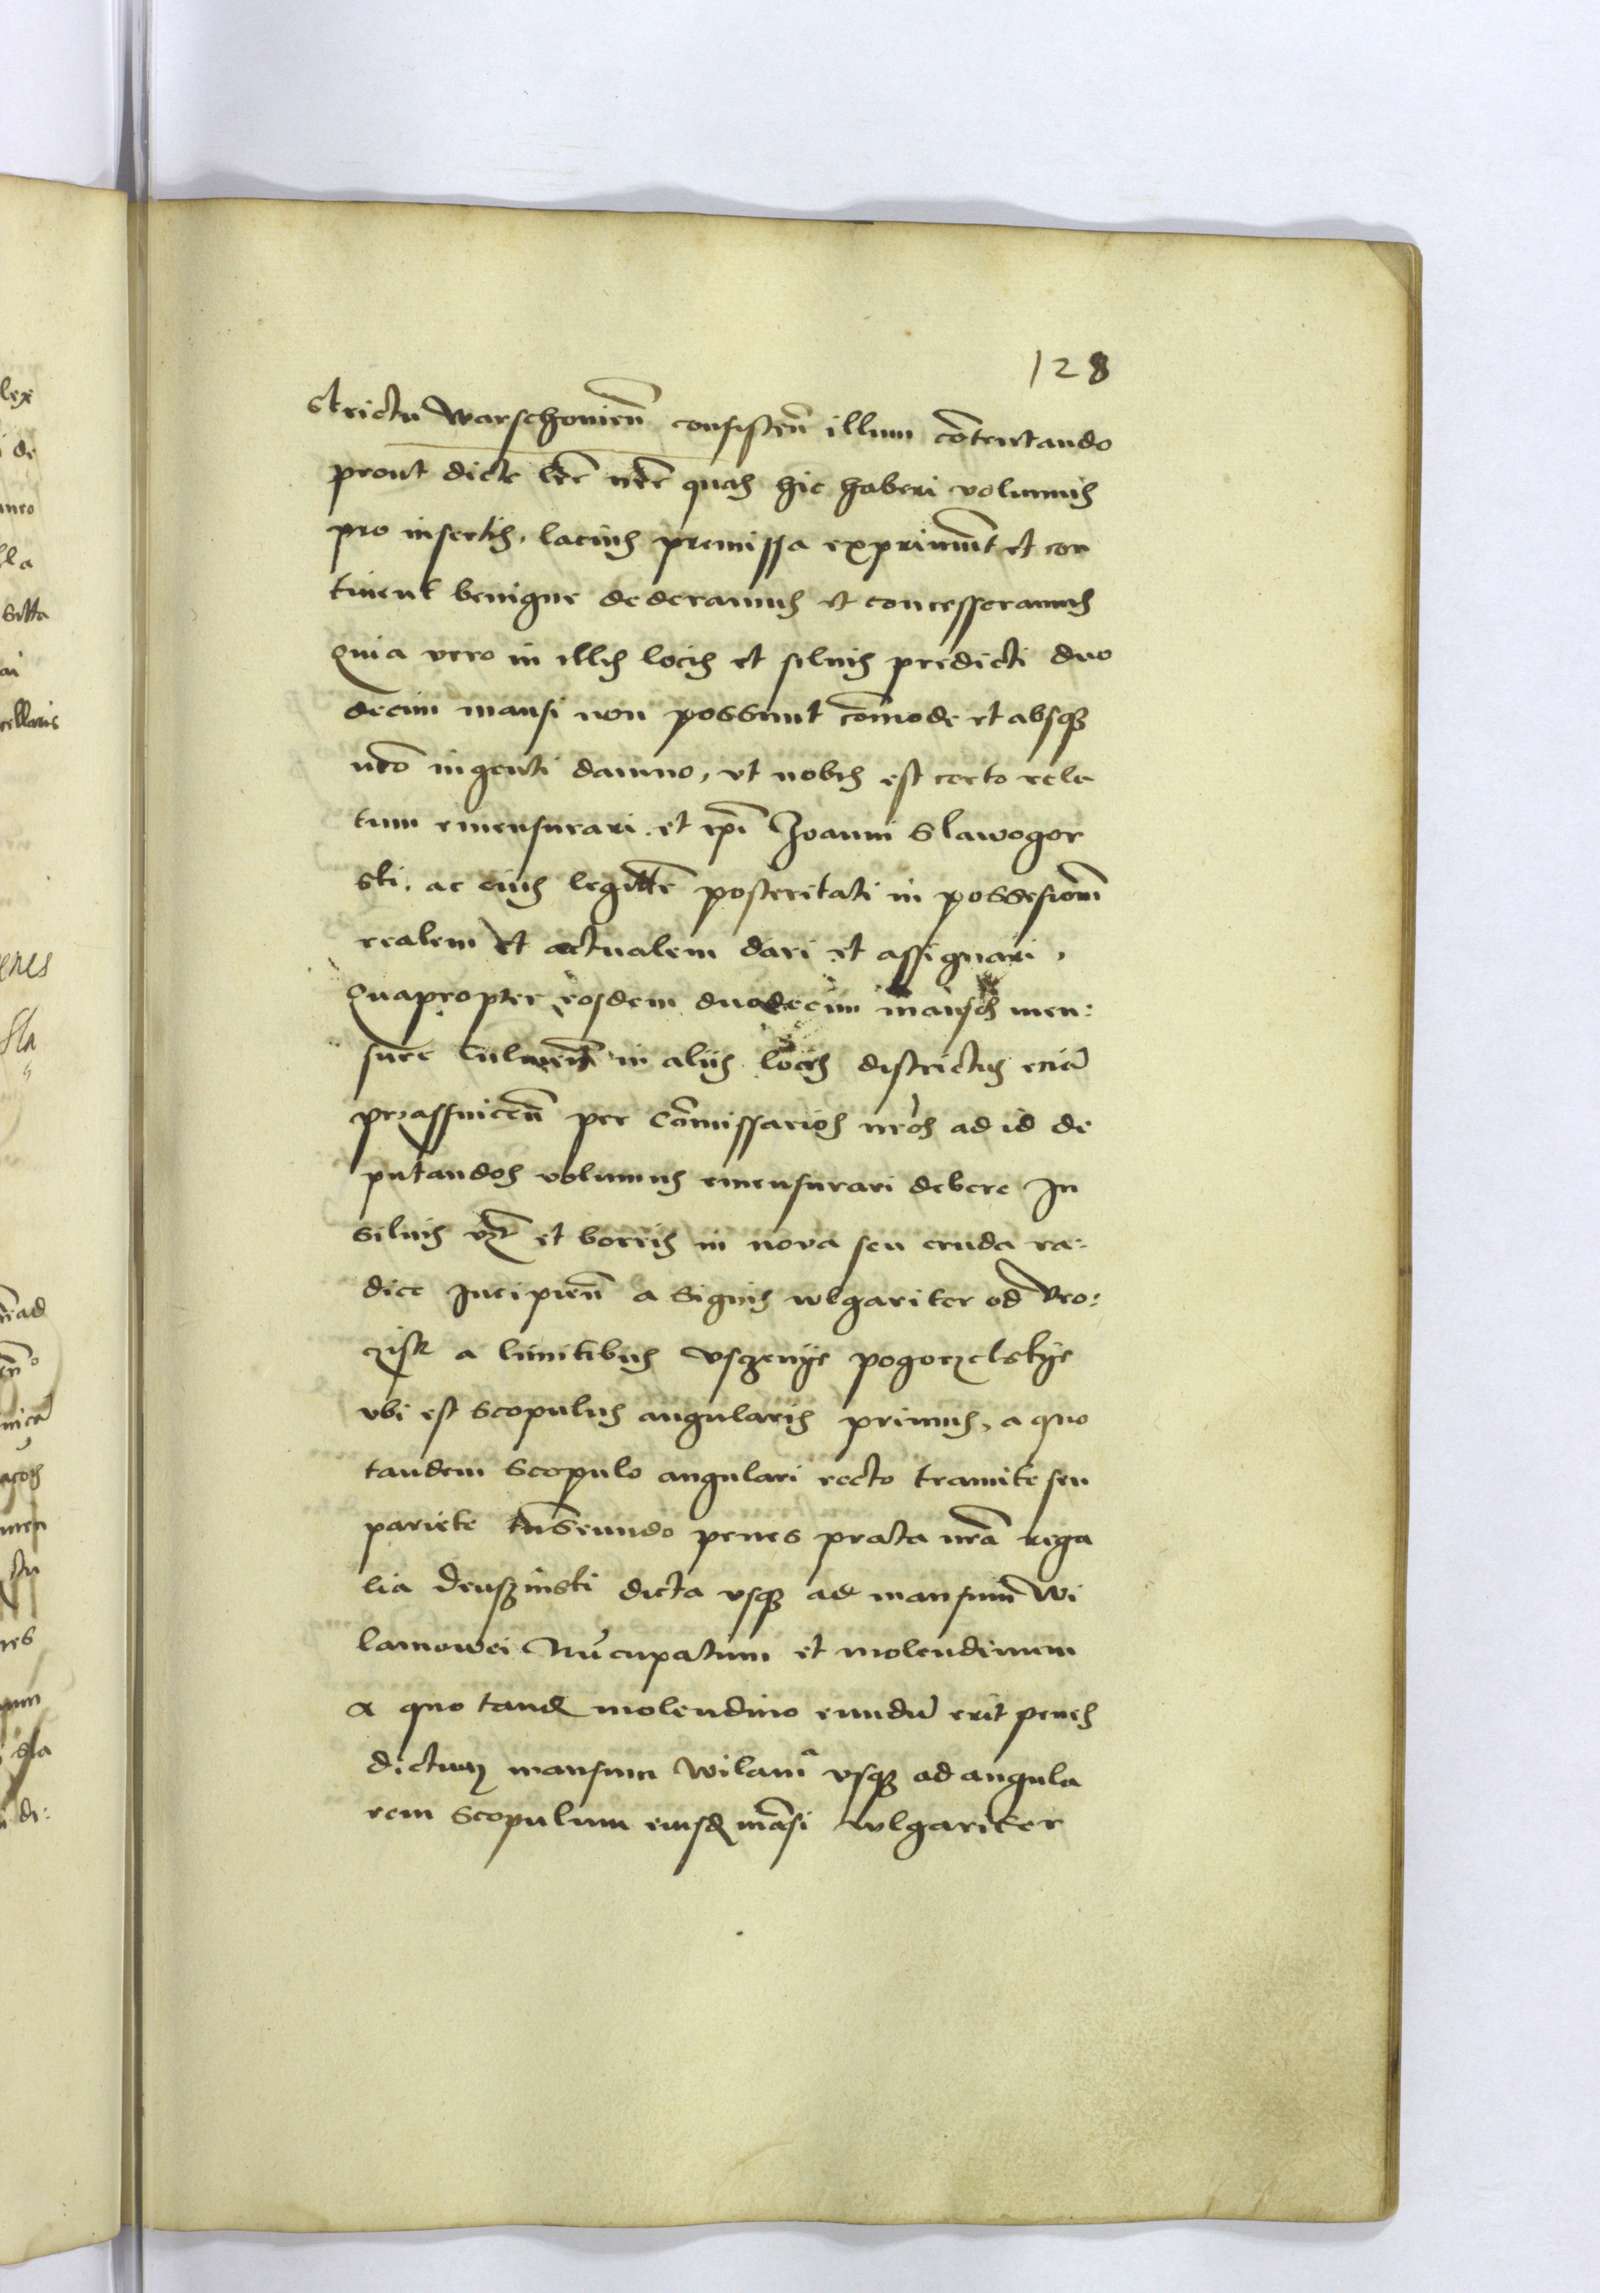 128
strictu Warschouien̄ consisten̄ illum cōtentando
prout dicte lr̄e nr̄e quas hic haberi volumus
pro insertis, lacius premissa exprimūt et con
tinent benigne dederamus et concesseramus
Quia vero in illis locis et siluis predicti duo
decim mansi non possunt cōmode et absqȝ
nr̄o ingenti damno, vt nobis est certo rela
tum emensurari et ip̄i Joanni Slawogor
ski, ac eius legittīe posteritati in possesionē
realem et actualem dari et assignari,
Quapropter eosdem duodecim mansos men:
sure Culmen̄ in aliis locis districtus eciā
przassnicen̄ per Cōmissarios nr̄os ad id de
putandos volumus emensurari debere In
siluis vȝt et borris in nova seu cruda ra:
dice Incipien̄ a signis wlgariter od Vro:
czisk a limitibus vsczenye pogorzelskye
vbi est Scopulus angularis primus, a quo
tandem Scopulo angulari recto tramite seu
pariete trāseundo penes prata nr̄a rega
lia Deuszinski dicta vsqȝ ad mansum Wi
lamowei Nūcupatum et molendinum
a quo tandē molendino eundū erit penes
dictum mansum Wilam̄ vsqȝ ad angula
rem Scopulum eiusdē māsi wlgariter